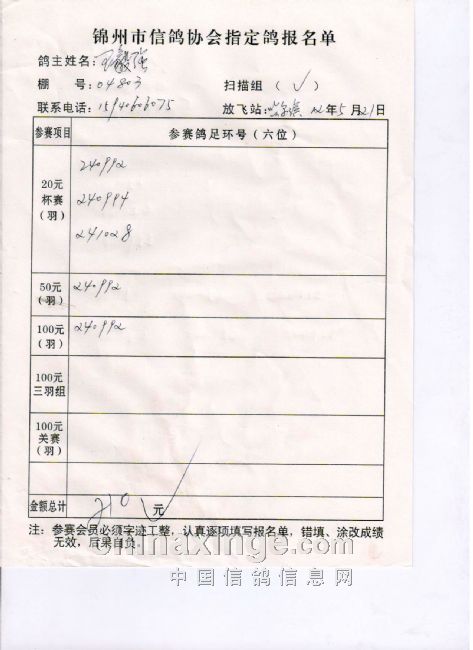 锦州市信鸽协会指定鸽报名单
鸽主姓名：王
棚 号：04803 扫描组（✓）
联系电话：15940606075 放飞站： 12年5月21日
参赛项目 参赛鸽足环号（六位）
20元
杯赛
（羽）
240992
240994
241028
50元
（羽）
240992
100元
（羽）
240992
100元
三羽组
100元
美赛
（羽）
金额总计 210 元
注：参赛会员必须字迹工整，认真逐项填写报名单，错填、涂改成绩
无效，后果自负。
chinaxinge.com
中国信鸽信息网